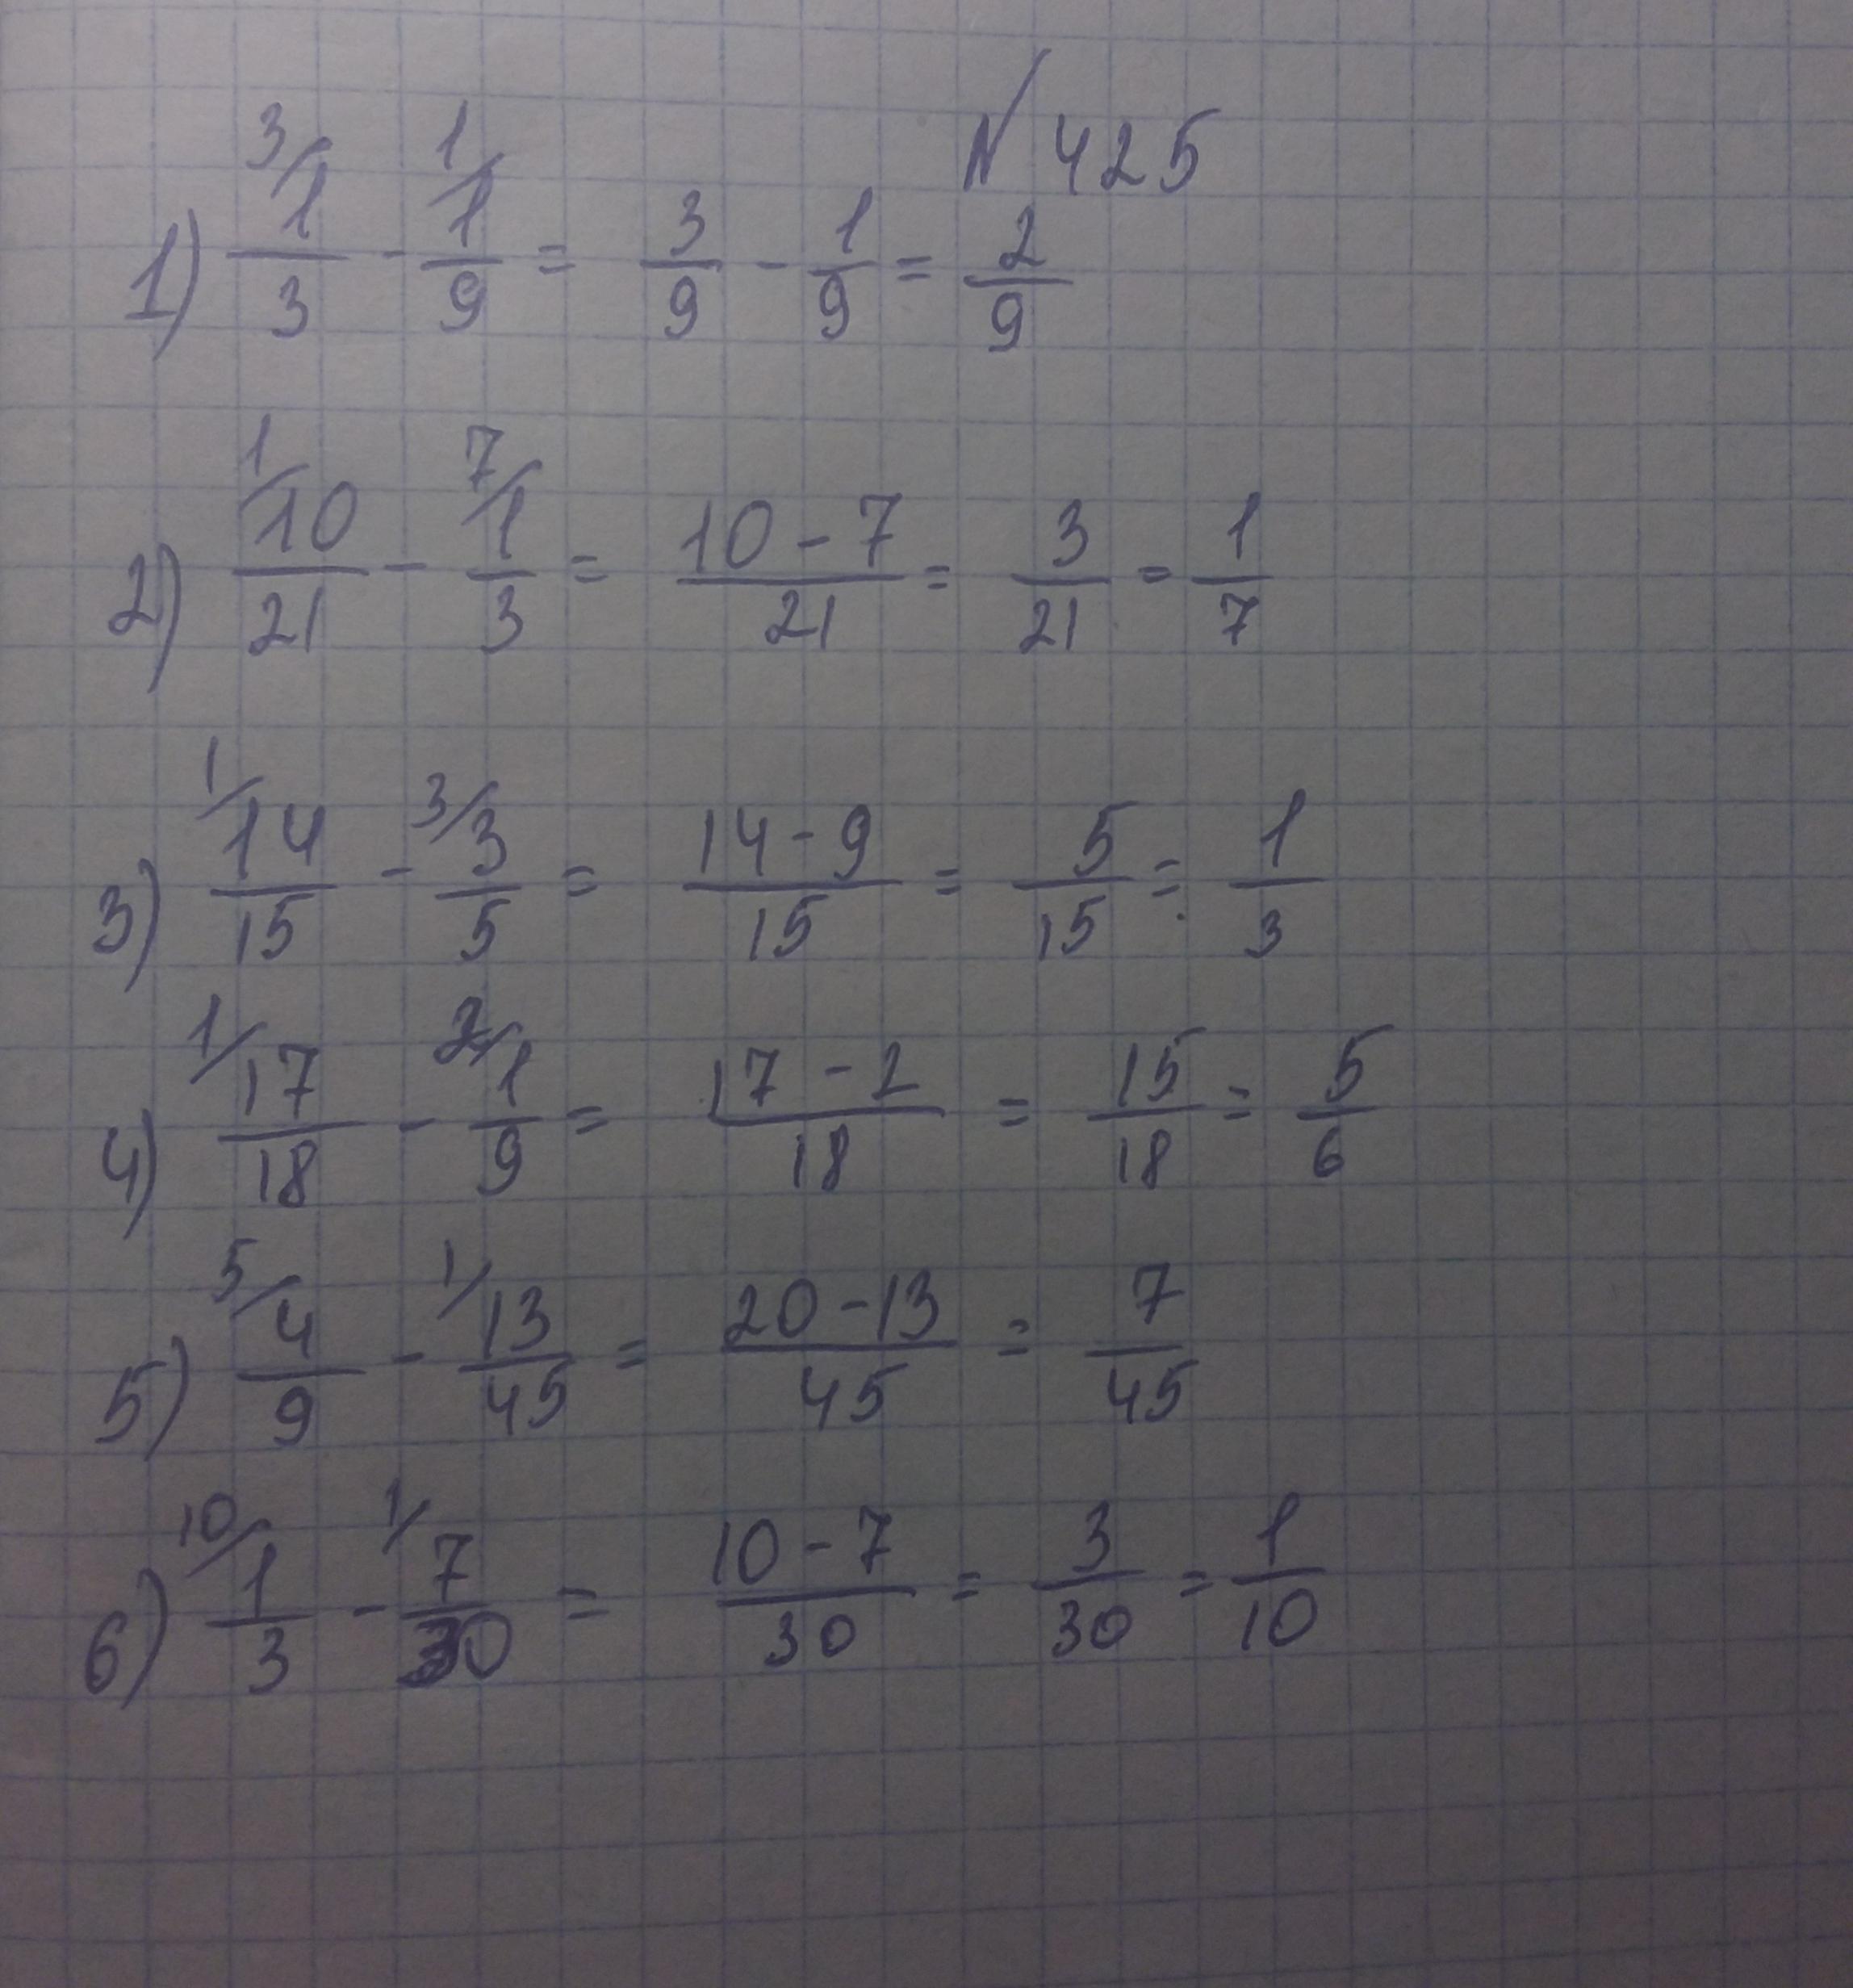 N 425
1) 3/ 1/3 - 1/ 1/9 = 3/9 - 1/9 = 2/9
2) 1/ 10/21 - 7/ 1/3 = 10-7/21 = 3/21 = 1/7
3) 1/ 14/15 - 3/ 3/5 = 14-9/15 = 5/15 = 1/3
4) 1/ 17/18 - 2/ 1/9 = 17-2/18 = 15/18 = 5/6
5) 5/ 4/9 - 1/ 13/45 = 20-13/45 = 7/45
6) 10/ 1/3 - 1/ 7/30 = 10-7/30 = 3/30 = 1/10